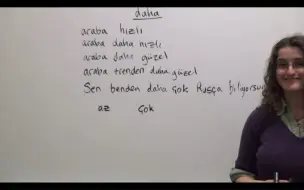 daha
araba hızlı
araba daha hızlı
araba daha güzel
araba trenden daha güzel
Sen benden daha çok Rusça biliyorsun
az çok